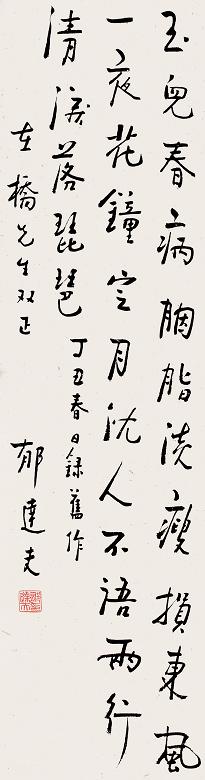 玉兒春病胭脂淺瘦損東風
一夜花鐘定月沈人不語兩行
清淚落琵琶
丁丑春日錄舊作
左橋先生双正
郁達夫